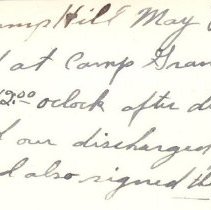 Camp Hill May
at Camp Gran
12:00 oclock after d
our discharges
also signed th